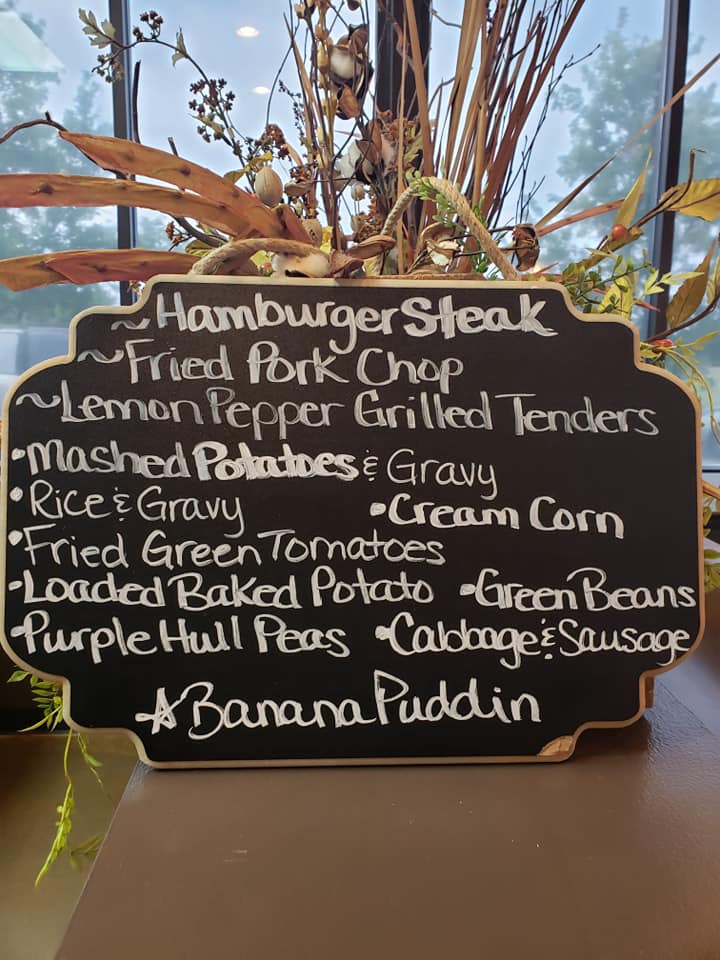 ~Hamburger Steak
~Fried Pork Chop
~Lemon Pepper Grilled Tenders
•Mashed Potatoes & Gravy
•Rice & Gravy •Cream Corn
•Fried Green Tomatoes
•Loaded Baked Potato •Green Beans
•Purple Hull Peas •Cabbage & Sausage
☆Banana Puddin